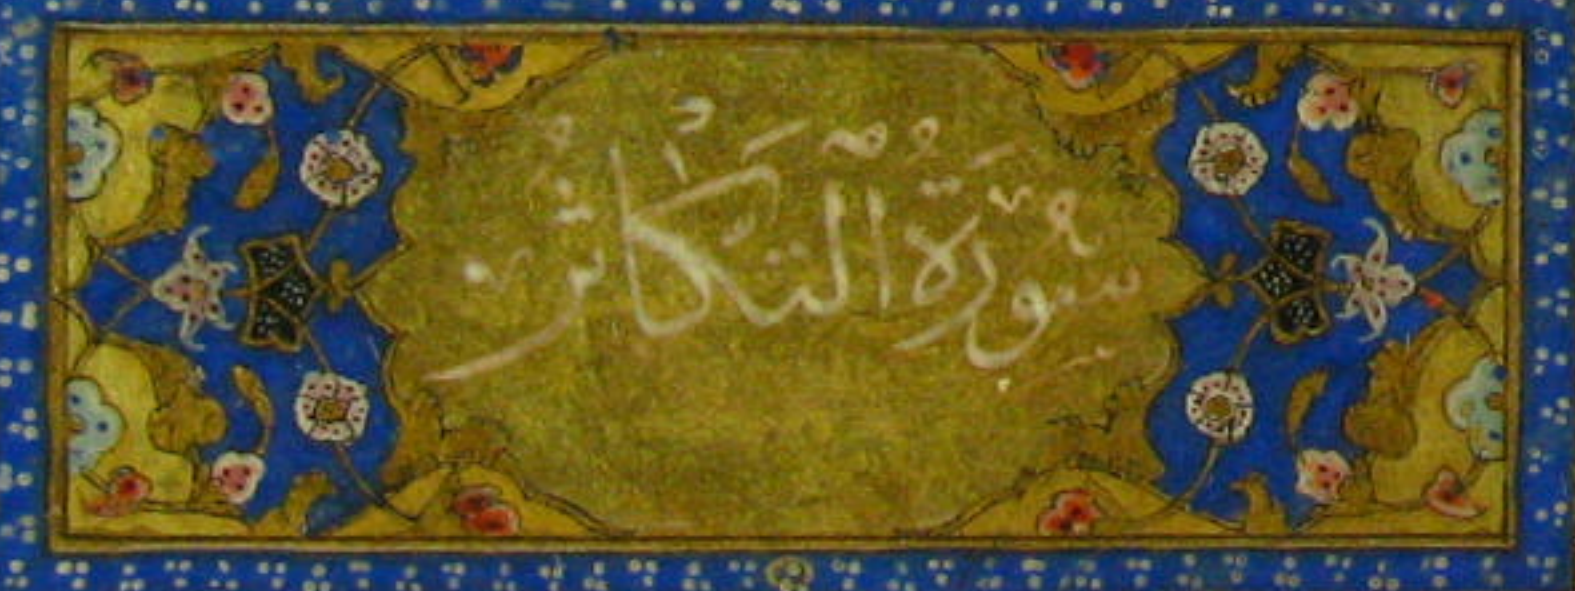 سُورَةُ التَّكَاثُرْ